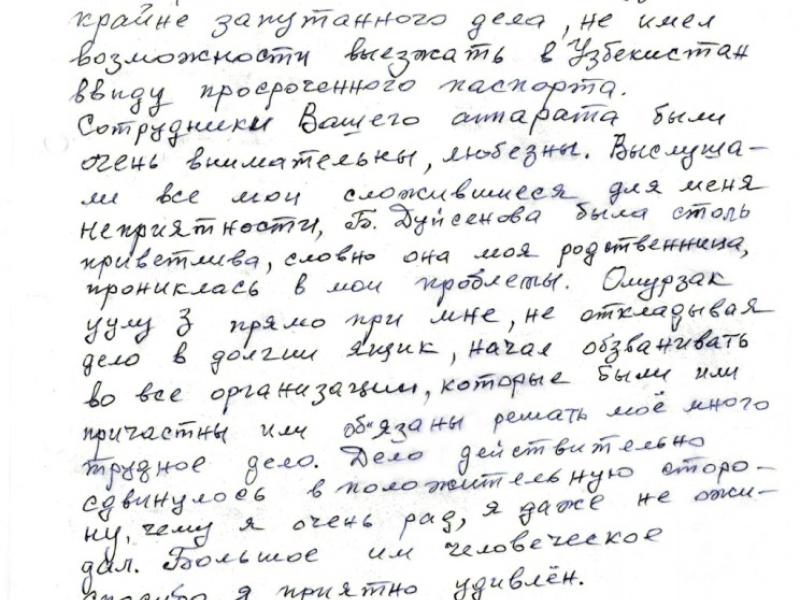 крайне запутанного дела, не имел
возможности выезжать в Узбекистан
ввиду просроченного паспорта.
Сотрудники Вашего аппарата были
очень внимательны, любезны. Выслуша-
ли все мои сложившиеся для меня
неприятности, Б. Дуйсенова была столь
приветлива, словно она моя родственница,
прониклась в мои проблемы. Омурзак
уулу З прямо при мне, не откладывая
дело в долгий ящик, начал обзванивать
во все организации, которые были или
причастны или об"язаны решать моё много
трудное дело. Дело действительно
сдвинулось в положительную сторо-
ну, чему я очень рад, я даже не ожи-
дал. Большое им человеческое
спасибо я приятно удивлён.